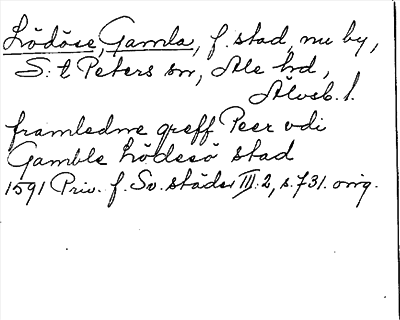 Lödöse, Gamla, f. stad, nu by,
S:t Peters sn, Ale hd,
Älvsb. l.
framledne greff Peer vdi
Gamble Lödesö stad
1591 Priv. f. Sv. städer III:2, s. 731. orig.